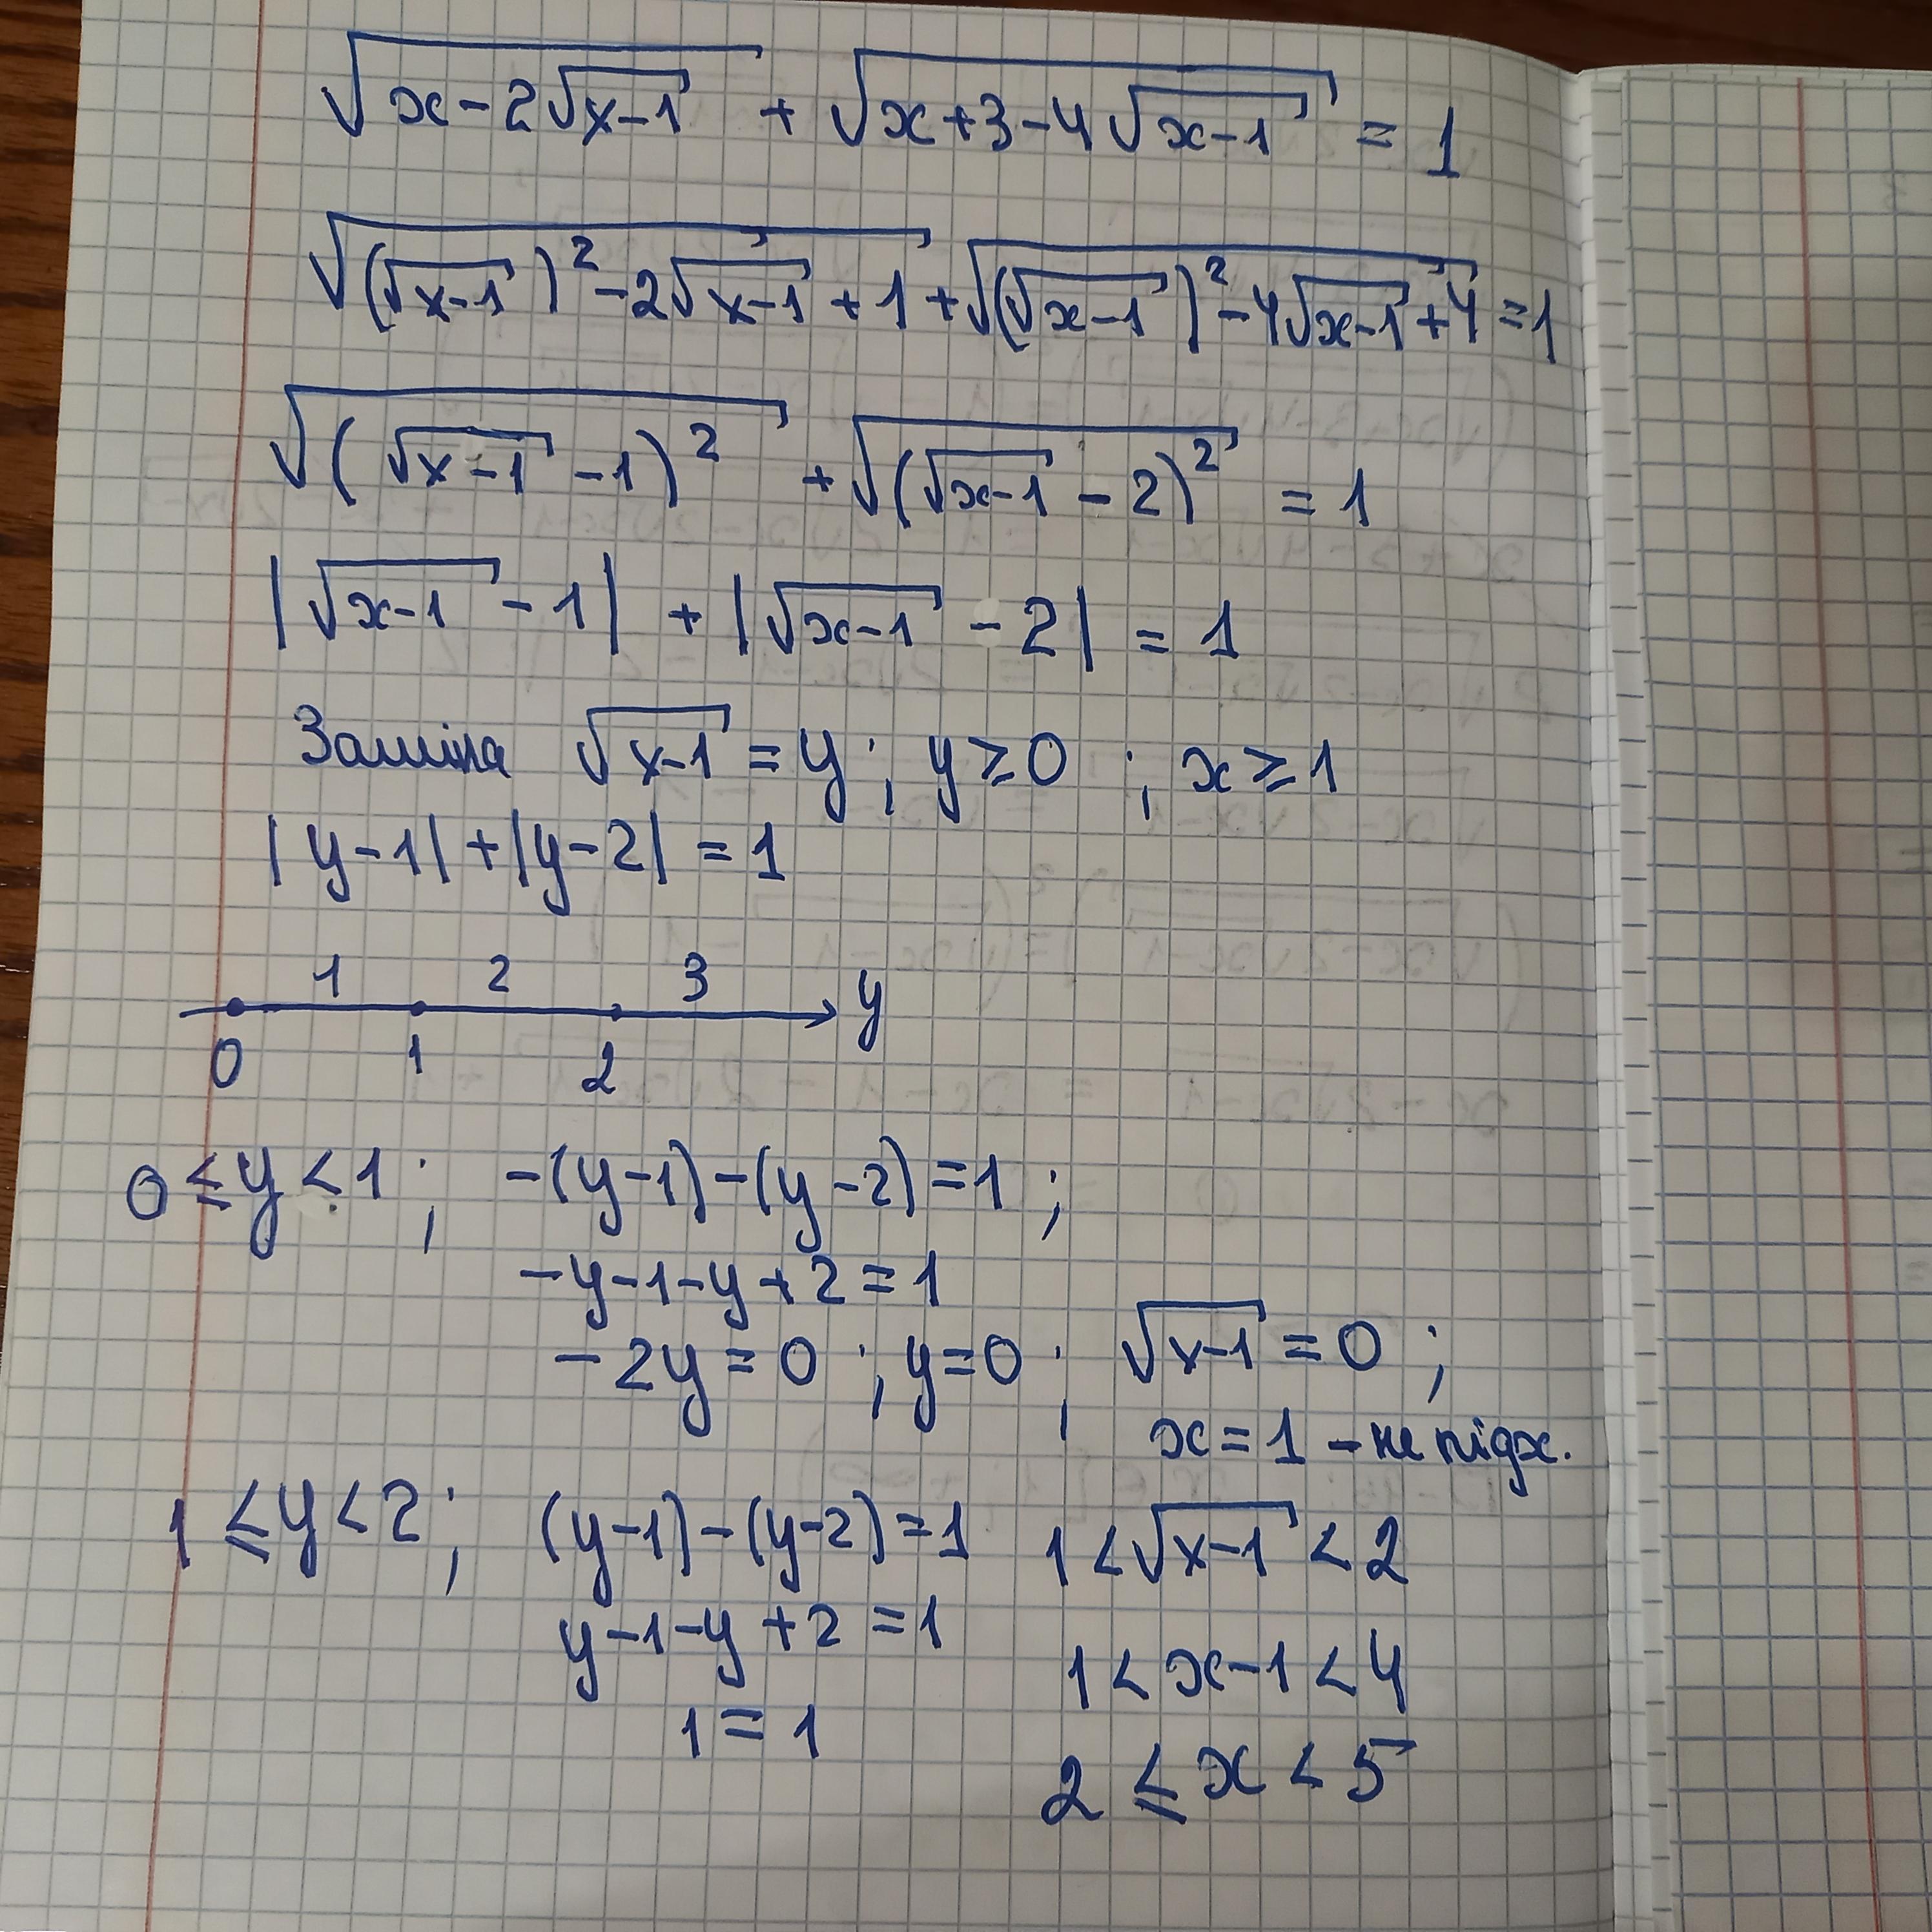 √(x-2√(x-1)) + √(x+3-4√(x-1)) = 1
√((√(x-1))²-2√(x-1)+1) + √((√(x-1))²-4√(x-1)+4) = 1
√((√(x-1)-1)²) + √((√(x-1)-2)²) = 1
|√(x-1)-1| + |√(x-1)-2| = 1
Заміна √(x-1) = y; y ≥ 0; x ≥ 1
|y-1|+|y-2| = 1
1 2 3 y
0 1 2
0 ≤ y < 1; -(y-1)-(y-2)=1;
-y-1-y+2=1
-2y=0; y=0; √(x-1) = 0;
x=1 - не підх.
1 ≤ y < 2; (y-1)-(y-2)=1 1 < √(x-1) < 2
y-1-y+2=1
1 < x-1 < 4
1 = 1
2 ≤ x < 5